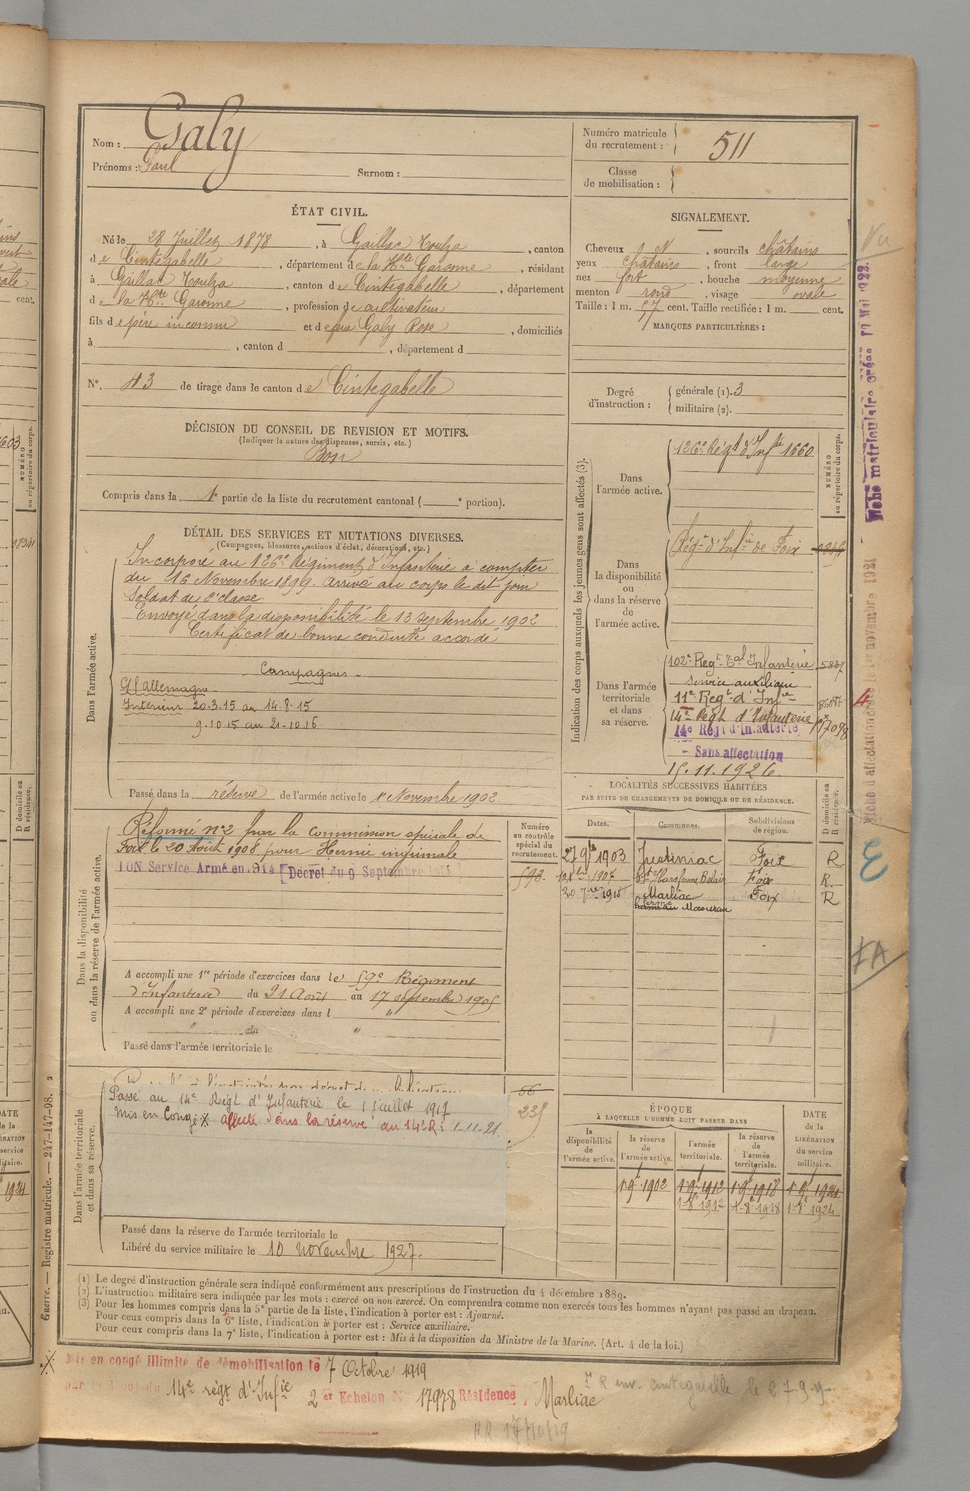 Nom : Galy
Prénoms : Paul Surnom :
Numéro matricule du recrutement : 511
Classe de mobilisation :
ÉTAT CIVIL.
Né le 28 Juillet 1878, à Gaillac Toulza, canton
de Cintegabelle, département de la Hte Garonne, résidant
à Gaillac Toulza, canton de Cintegabelle, département
de la Hte Garonne, profession de cultivateur
fils de père inconnu et de Galy Rose, domiciliés
à , canton d , département d
N° 43 de tirage dans le canton de Cintegabelle
SIGNALEMENT.
Cheveux N, sourcils châtains
yeux châtains, front large
nez fort, bouche moyenne
menton rond, visage ovale
Taille : 1 m. 57 cent. Taille rectifiée : 1 m. cent.
MARQUES PARTICULIÈRES :
DÉCISION DU CONSEIL DE REVISION ET MOTIFS.
(Indiquer la nature des dispenses, sursis, etc.)
Bon
Compris dans la 1e partie de la liste du recrutement cantonal ( e portion).
Degré d'instruction :
générale (1). 3
militaire (2).
DÉTAIL DES SERVICES ET MUTATIONS DIVERSES.
(Campagnes, blessures, actions d'éclat, décorations, etc.)
Dans l'armée active.
Incorporé au 126e Régiment d'Infanterie à compter
du 16 Novembre 1899. arrivé au corps le dit jour
Soldat de 2e classe
Envoyé dans la disponibilité le 13 septembre 1902
Certificat de bonne conduite accordé
Campagnes
Ct l'allemagne
Intérieur 20.3.15 au 14.8.15
9.10.15 au 21.10.16
Passé dans la réserve de l'armée active le 1 Novembre 1902
Indication des corps auxquels les jeunes gens sont affectés (3).
NUMÉRO au répertoire du corps.
Dans l'armée active.
126e Régt d'Infie 1660
Dans la disponibilité ou dans la réserve de l'armée active.
Régt d'Infie de Foix
Dans l'armée territoriale et dans sa réserve.
102e Regt Tal Infanterie 5837
service auxiliaire
11e Regt d'Infie
14e Regt d'Infanterie
14e Régt d'Infanterie
- Sans affectation
15.11.1926
Dans la disponibilité ou dans la réserve de l'armée active.
Réformé n°2 par la commission spéciale de
Foix le 20 Août 1908 pour Hernie inguinale
BON Service Armé en 1914 [Décret du 9 Septembre 1914]
Numéro au contrôle spécial du recrutement.
593
A accompli une 1re période d'exercices dans le 59e Régiment
d'Infanterie du 21 Août au 17 septembre 1905
A accompli une 2e période d'exercices dans l
du
Passé dans l'armée territoriale le
LOCALITÉS SUCCESSIVES HABITÉES
PAR SUITE DE CHANGEMENTS DE DOMICILE OU DE RÉSIDENCE.
Dates. Communes. Subdivisions de région. D domicile ou R résidence.
27 9bre 1903 Justiniac Foix R
1907 Foix R.
20 1915 Marliac Foix R
Dans l'armée territoriale et dans sa réserve.
Passé au 14e Régt d'Infanterie le 1 juillet 1917
Mis en Congé X affecté dans la réserve au 14e R.I 1-11-21
66
235
Passé dans la réserve de l'armée territoriale le
Libéré du service militaire le 10 novembre 1927.
ÉPOQUE
À LAQUELLE L'HOMME DOIT PASSER DANS
la disponibilité de l'armée active. la réserve de l'armée active. l'armée territoriale. la réserve de l'armée territoriale. DATE de la LIBÉRATION du service militaire.
1-9bre 1902 1-9bre 1912 1-9bre 1918 1-9bre 1924
1-8bre 1912 1-8bre 1918 1-8bre 1924
(1) Le degré d'instruction générale sera indiqué conformément aux prescriptions de l'instruction du 4 décembre 1889.
(2) L'instruction militaire sera indiquée par les mots : exercé ou non exercé. On comprendra comme non exercés tous les hommes n'ayant pas passé au drapeau.
(3) Pour les hommes compris dans la 5e partie de la liste, l'indication à porter est : Ajourné.
Pour ceux compris dans la 6e liste, l'indication à porter est : Service auxiliaire.
Pour ceux compris dans la 7e liste, l'indication à porter est : Mis à la disposition du Ministre de la Marine. (Art. 4 de la loi.)
X Mis en congé illimité de démobilisation le 7 Octobre 1919
14e régt d'Infie 2er Echelon N° 17978 Résidence, Marliac
Guerre. — Registre matricule. — 247-147-98.
Fiche matriculaire créée 10 Mai 1922.
Vu
4
IA